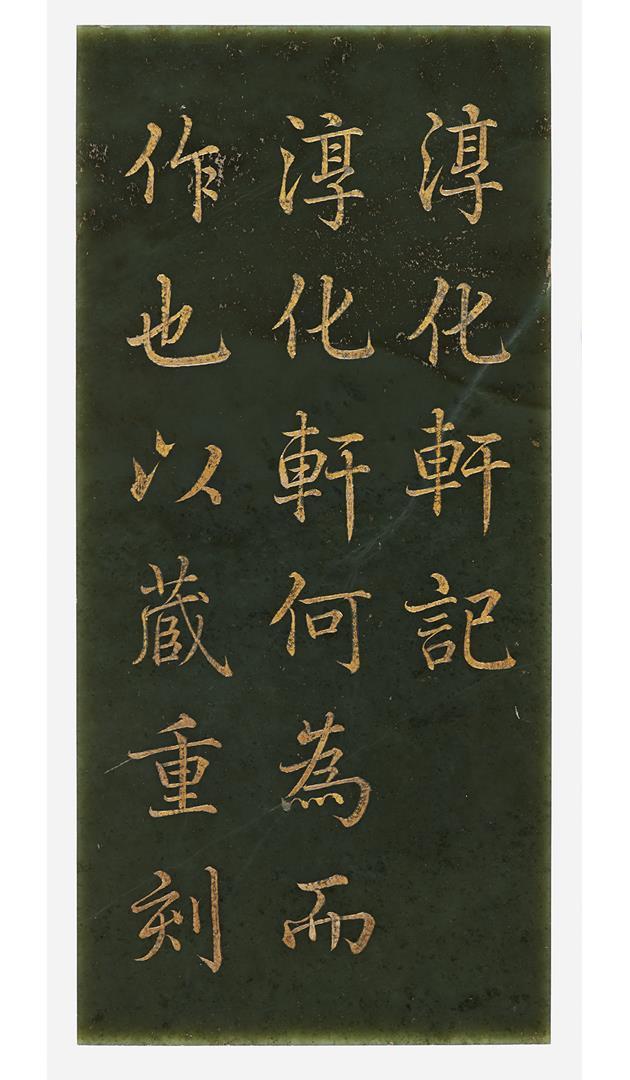 淳化軒記
淳化軒何為而
作也以藏重刻